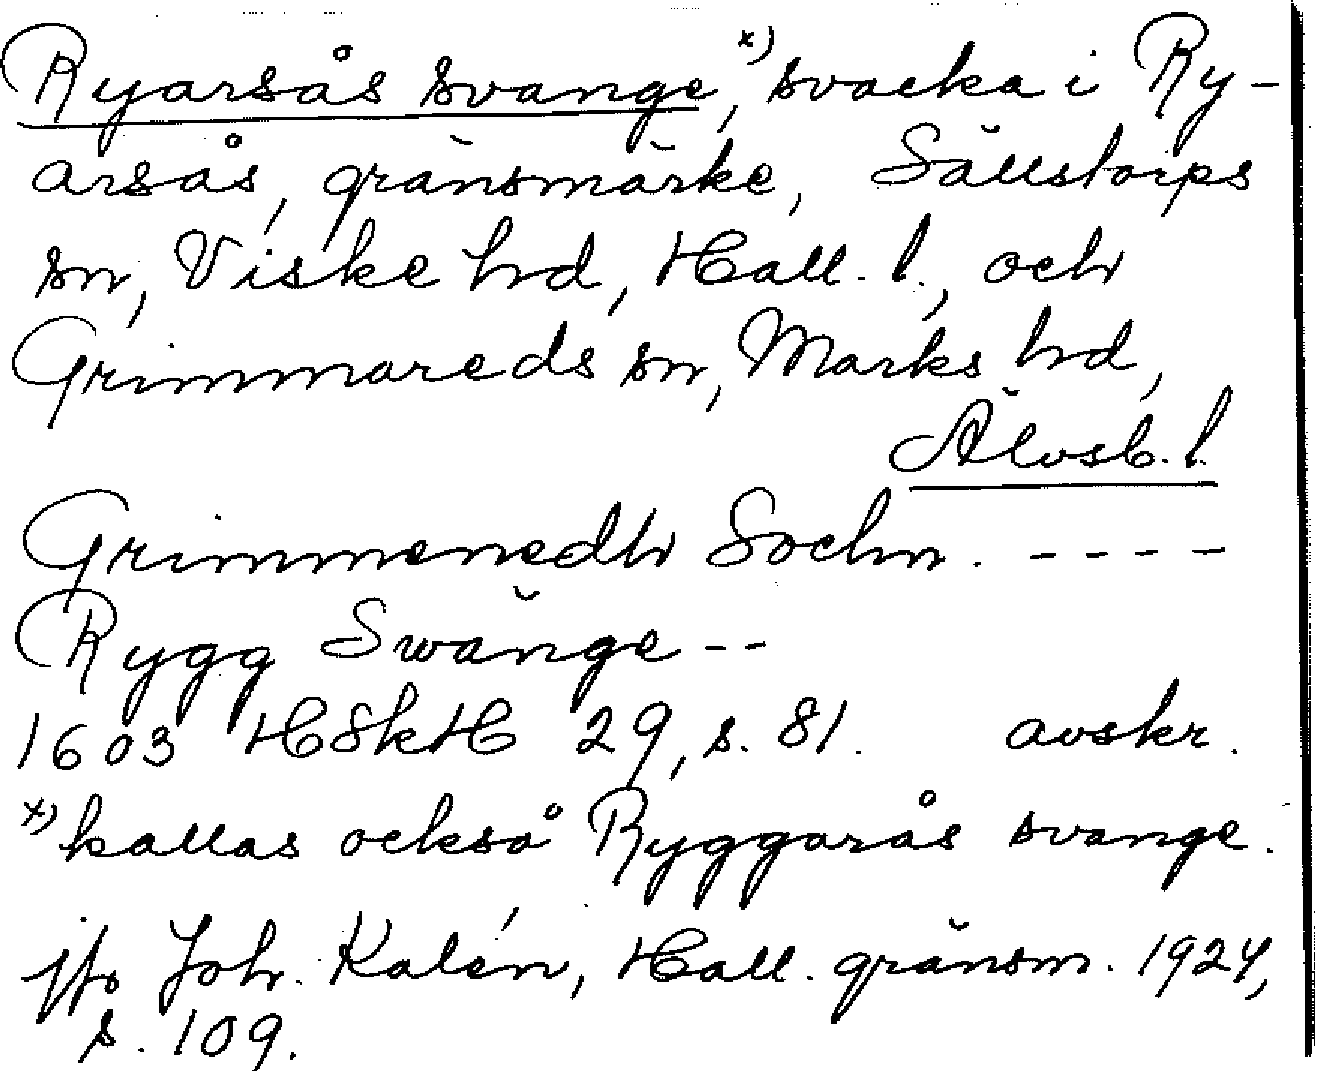 Ryarsås svange,ˣ⁾ svacka i Ry-
arsås, gränsmärke, Sällstorps
sn, Viske hd, Hall. l., och
Grimmareds sn, Marks hd,
Älvsb. l.
Grimmenedh Sochn. ----
Rygg Swänge --
1603 HSkH 29, s. 81. avskr.
ˣ⁾ kallas också Ryggarås svange.
jfr Joh. Kalén, Hall. gränsm. 1924,
s. 109.